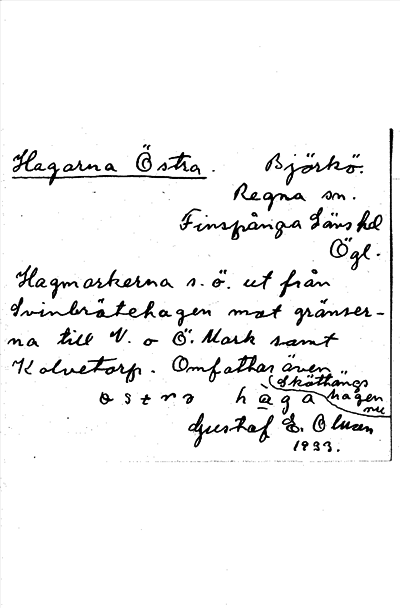 Hagarna Östra. Björkö.
Regna sn.
Finspånga läns hd
Ögl.
Hagmarkerna s. ö. ut från
Svinbråtehagen mot gränser-
na till V. o Ö. Mark samt
Kalvetorp. Omfattar även
Skäthängs
hagen
nu
östra hàga
Gustaf E. Olsson
1933.